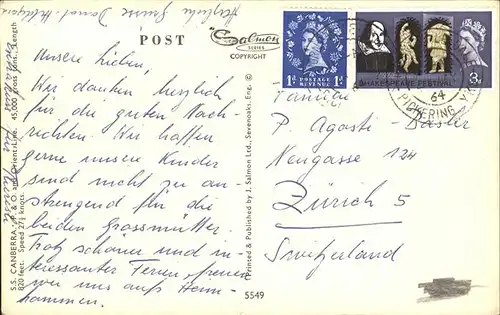 Herzliche Grüsse
POST
Salmon
SERIES
COPYRIGHT
Unsere Lieben,
Wir danken herzlich
für die guten Nach-
richten. Wir hoffen
gerne unsere Kinder
sind nicht zu an-
strengend für die
beiden Grossmütter.
Trotz schöner und in-
teressanter Ferien, freuen
wir uns aufs Heim-
kommen.
S.S. CANBERRA, P. & O. and Orient Line. 45,000 gross tons. Length
820 feet. Speed 27½ knots
Printed & Published by J. Salmon Ltd., Sevenoaks, Eng. ©
5549
1D POSTAGE REVENUE 1D
SHAKESPEARE FESTIVAL
3D
64
PICKERING
Familie
P. Agosti-
Neugasse 124
Zürich 5
Switzerland